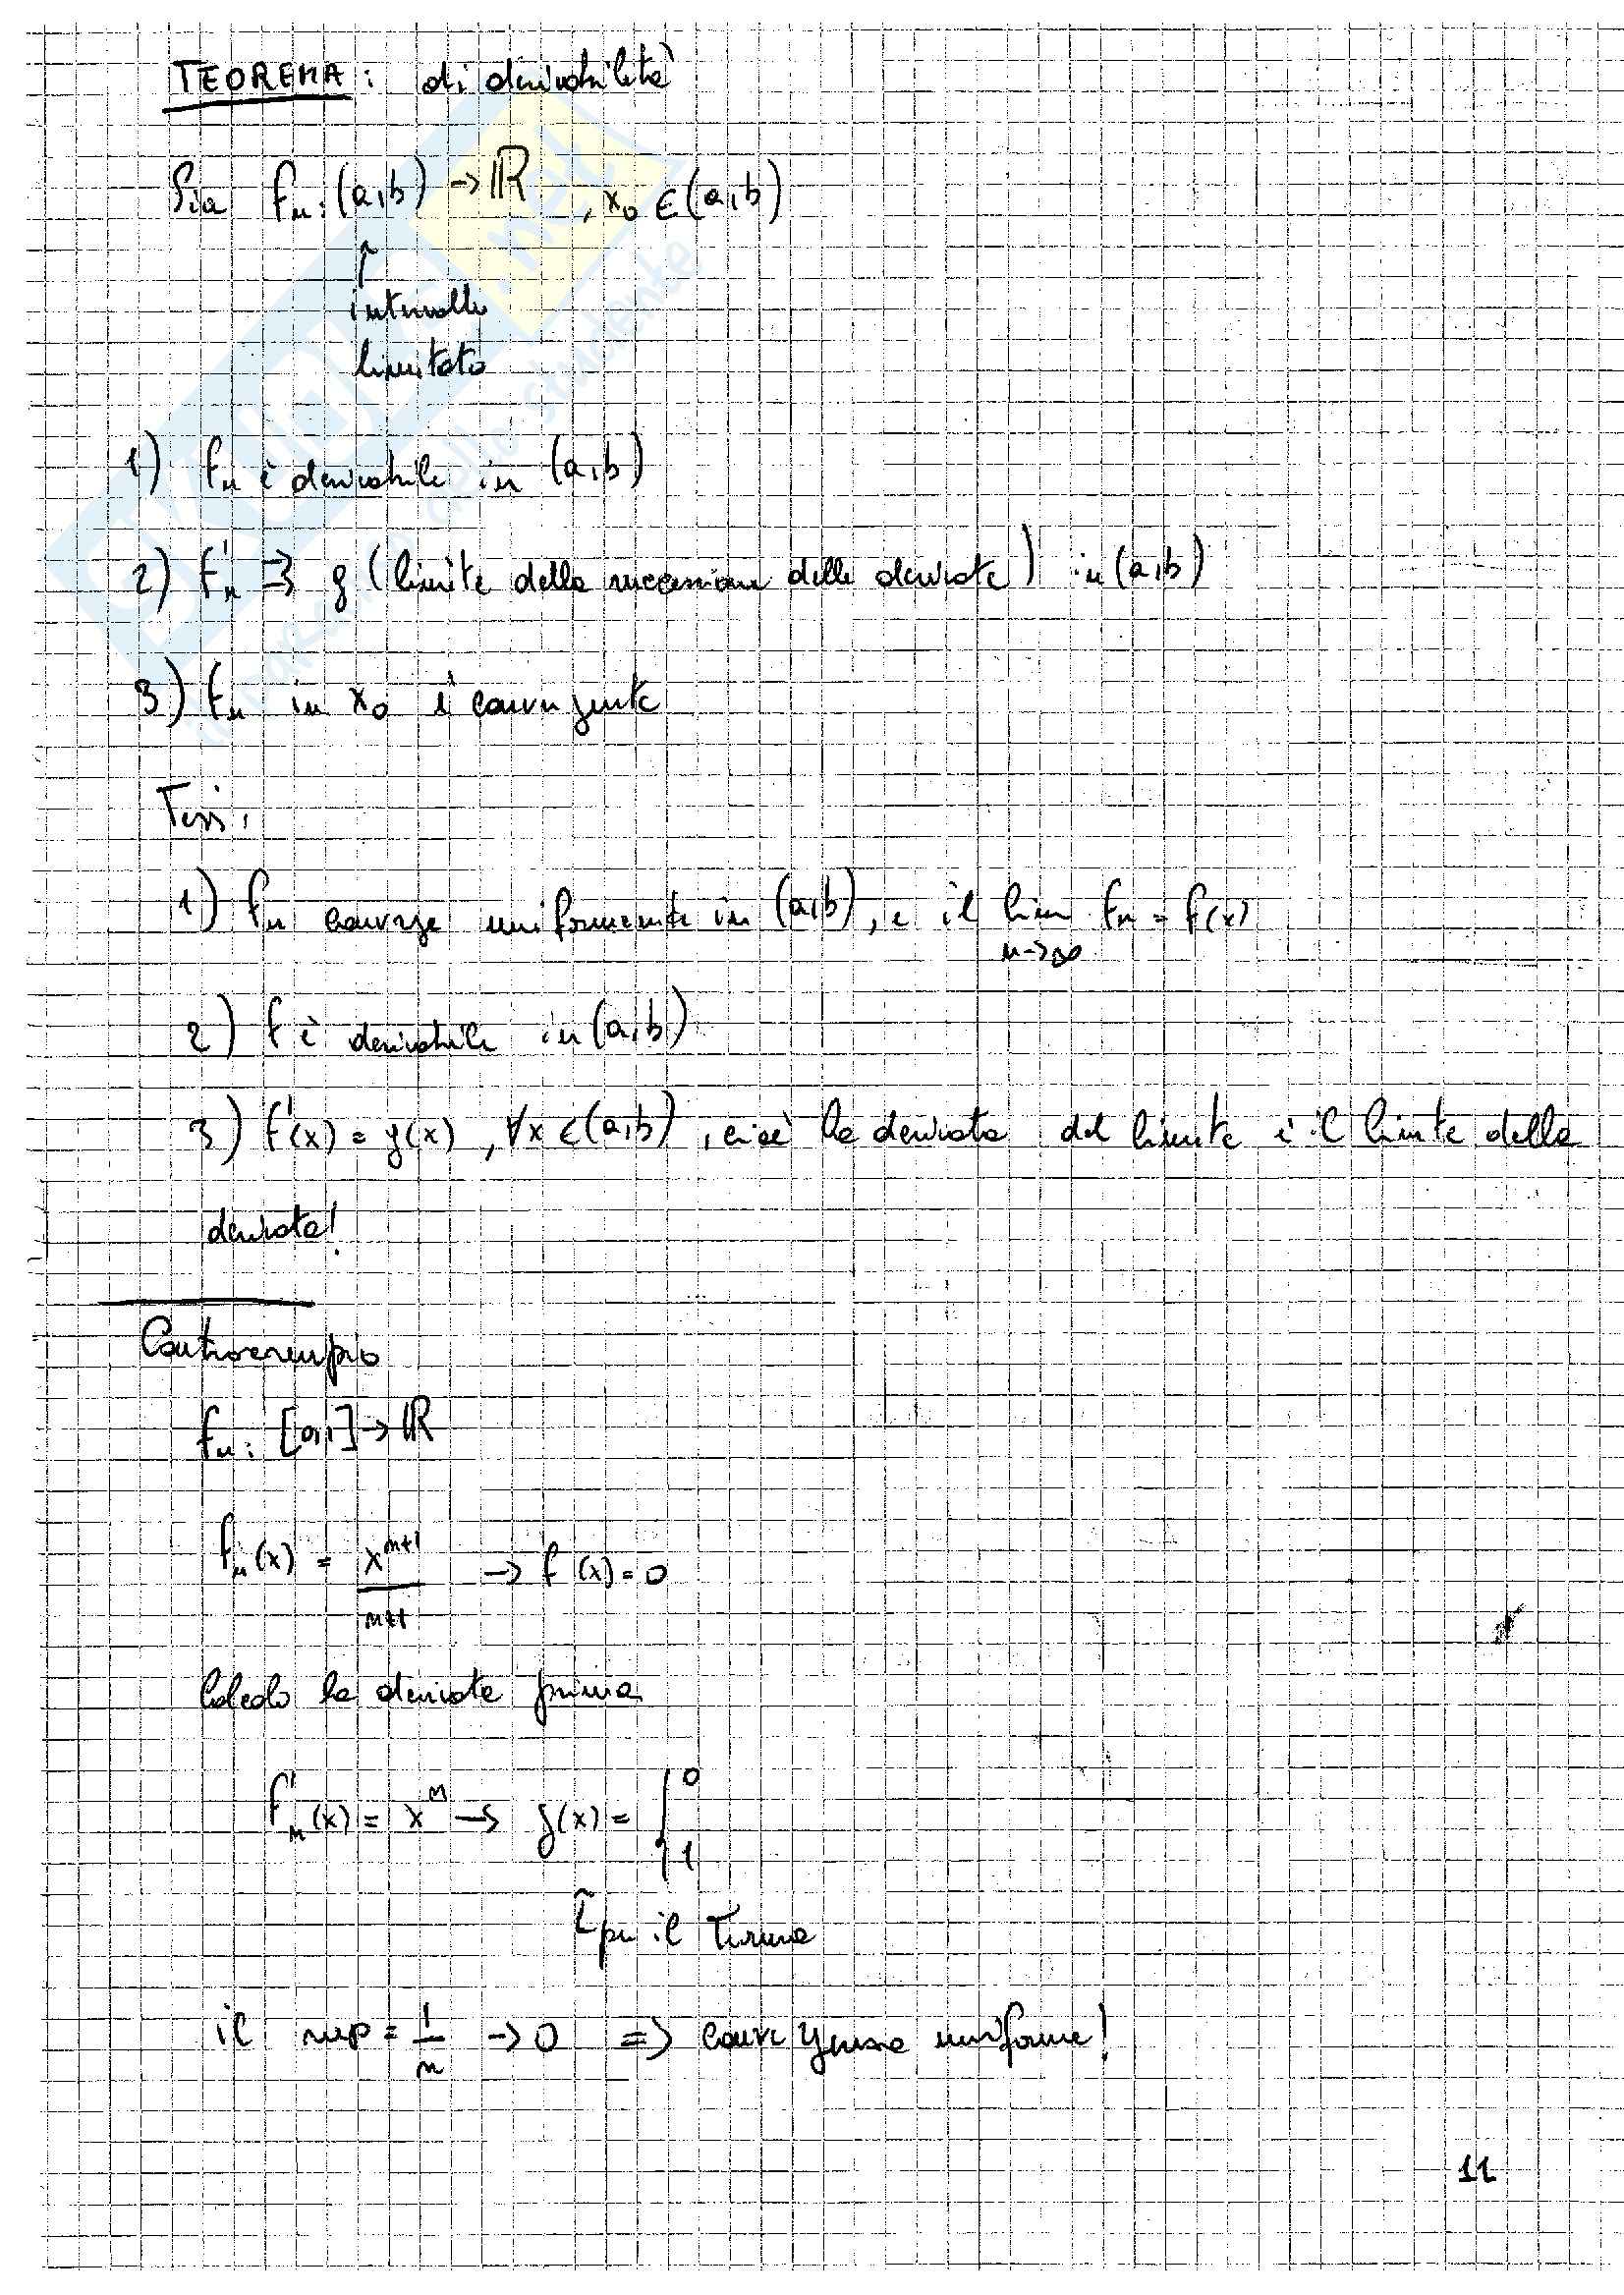 TEOREMA: di derivabilità
Sia fn: (a,b) → ℝ , x₀ ∈ (a,b)
↑
intervallo
limitato
1) fn è derivabile in (a,b)
2) f'n ⇉ g (limite della successione delle derivate) in (a,b)
3) fn in x₀ è convergente
Tesi:
1) fn converge uniformemente in (a,b), e il lim fn = f(x)
n→∞
2) f è derivabile in (a,b)
3) f'(x) = g(x), ∀x ∈ (a,b), cioè la derivata del limite è il limite della
derivata!
Controesempio
fn: [0,1] → ℝ
fn(x) = xⁿ⁺¹ → f(x) = 0
n+1
Calcolo la derivata prima
f'n(x) = xⁿ → g(x) = { 0
1
↑ per il Teorema
il sup = 1/n → 0 ⇒ convergenza uniforme!
11